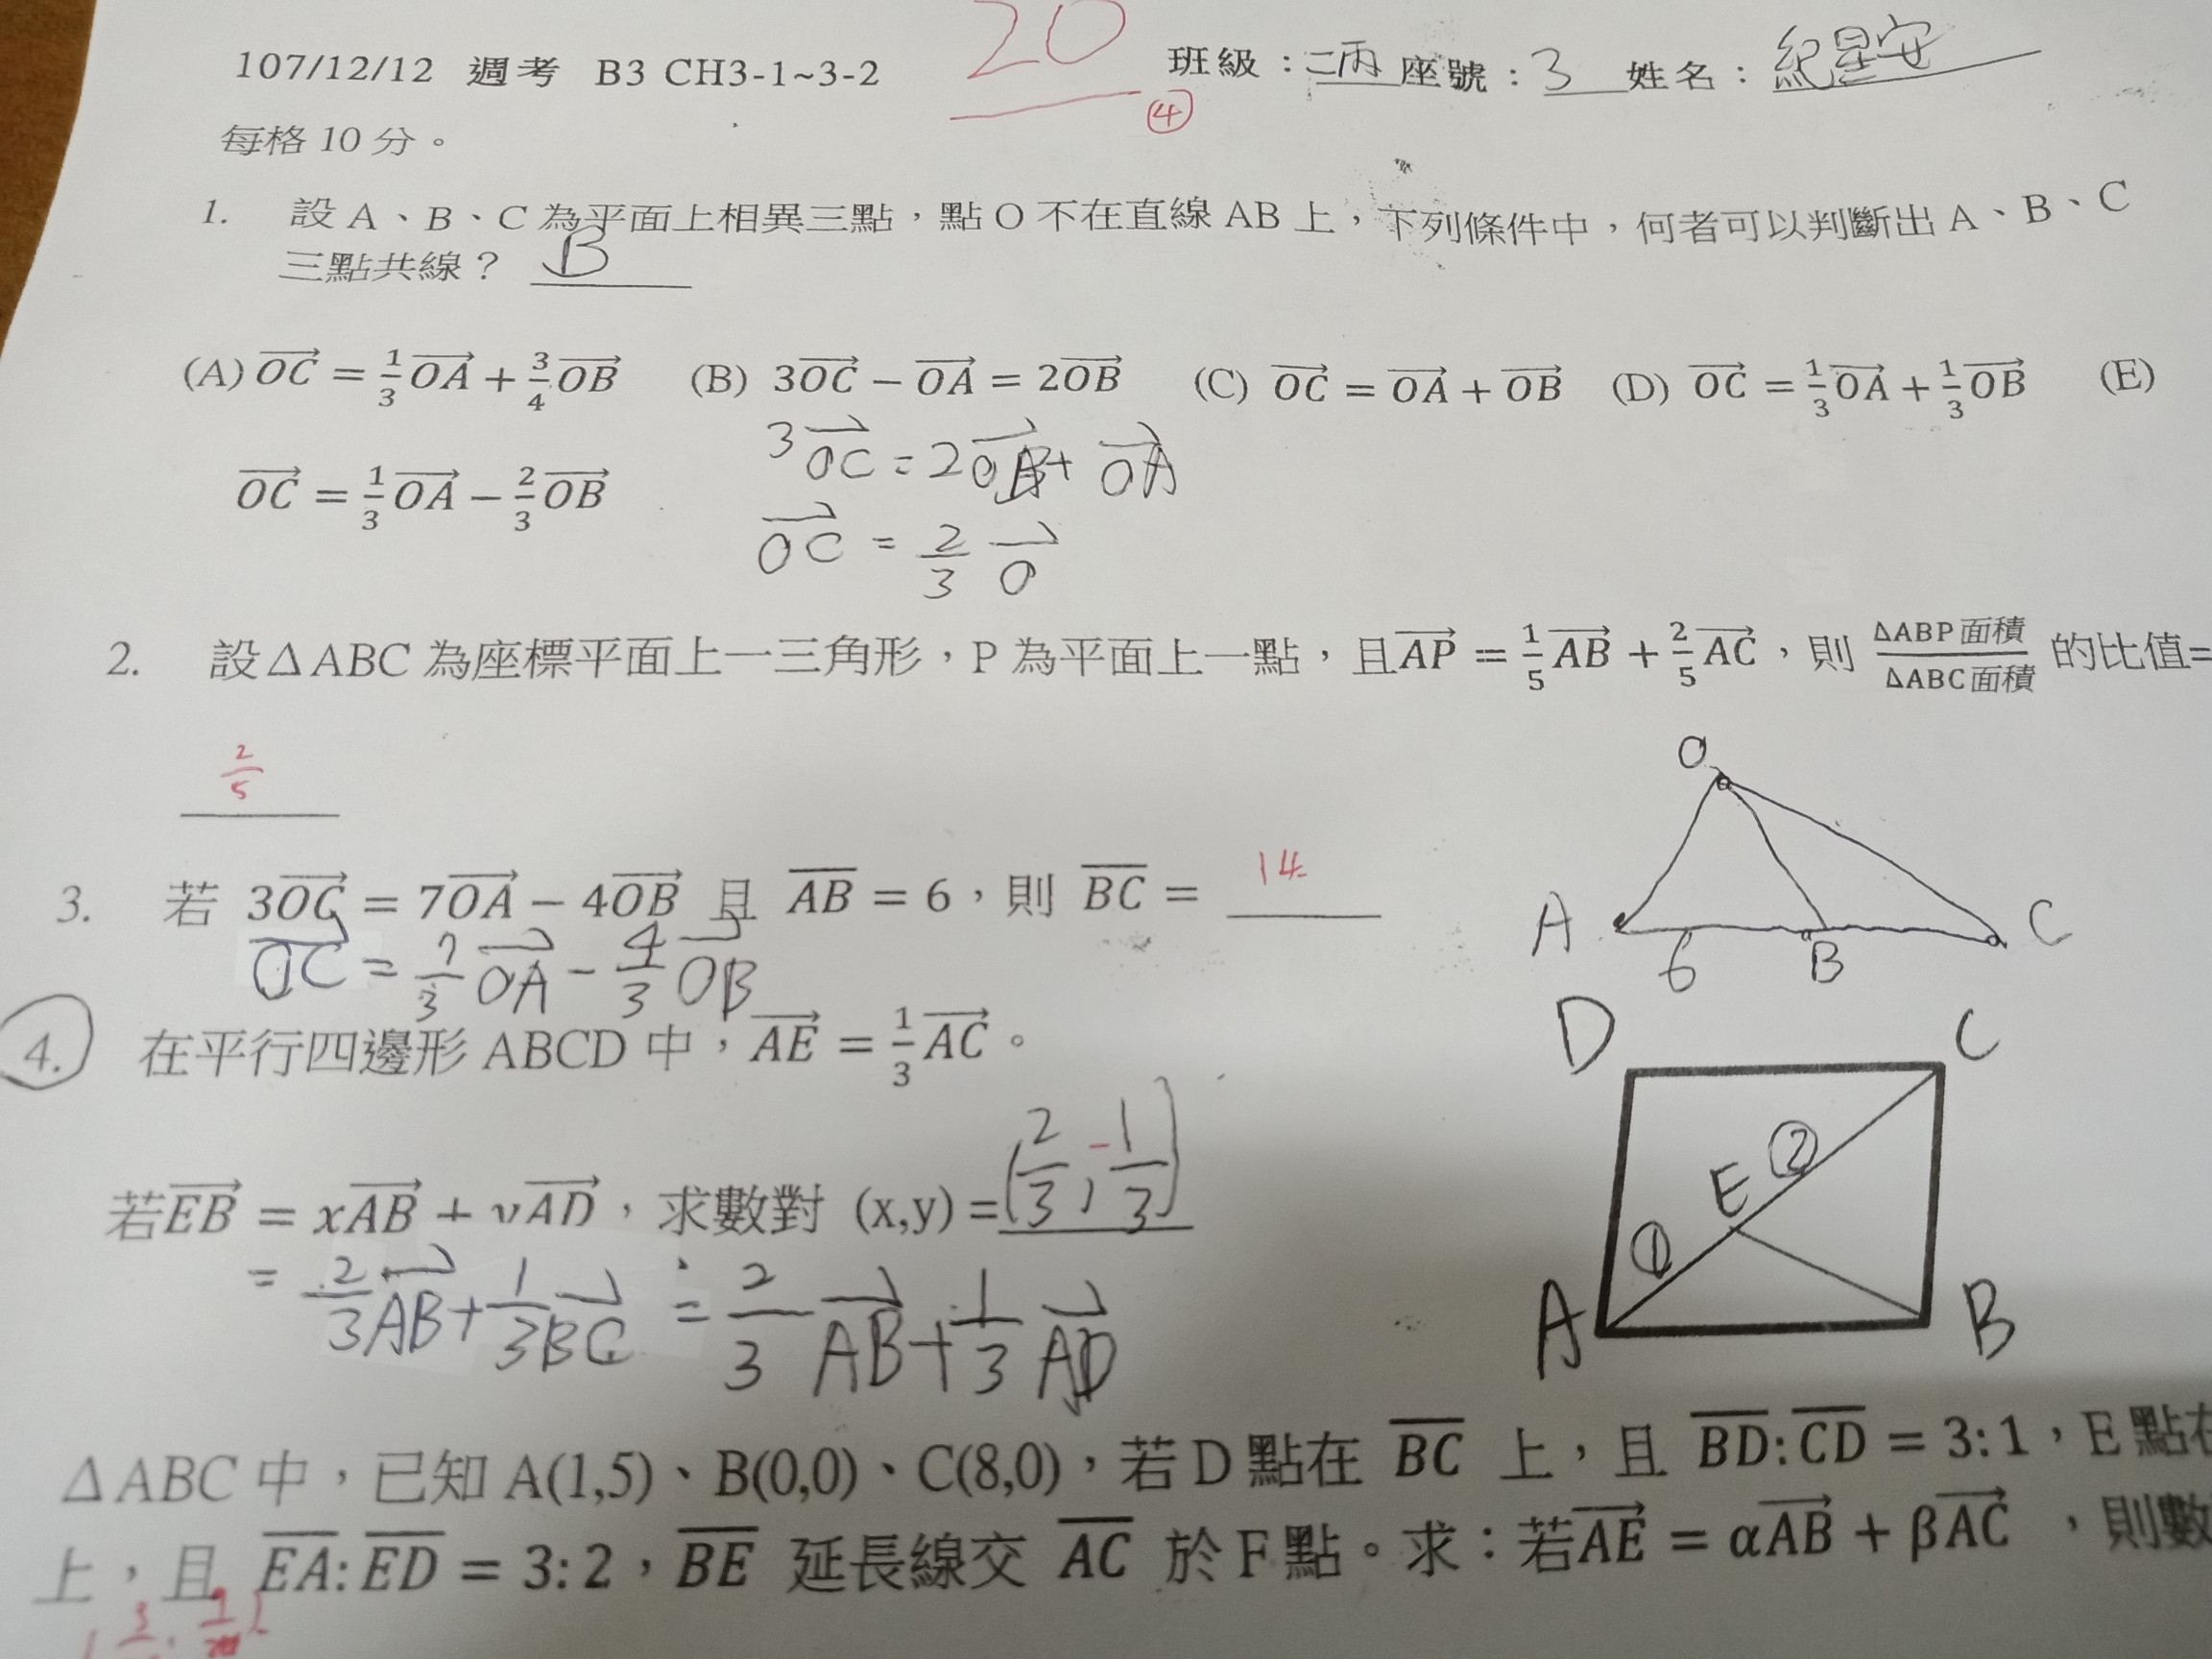 20
107/12/12 週考 B3 CH3-1~3-2 班級：二丙 座號：3 姓名：紀星安
④
每格 10 分。
1. 設 A、B、C 為平面上相異三點，點 O 不在直線 AB 上，下列條件中，何者可以判斷出 A、B、C
三點共線？ B
(A) \overrightarrow{OC} = \frac{1}{3}\overrightarrow{OA} + \frac{3}{4}\overrightarrow{OB} (B) 3\overrightarrow{OC} − \overrightarrow{OA} = 2\overrightarrow{OB} (C) \overrightarrow{OC} = \overrightarrow{OA} + \overrightarrow{OB} (D) \overrightarrow{OC} = \frac{1}{3}\overrightarrow{OA} + \frac{1}{3}\overrightarrow{OB} (E)
3\overrightarrow{OC} = 2\overrightarrow{OB} + \overrightarrow{OA}
\overrightarrow{OC} = \frac{1}{3}\overrightarrow{OA} − \frac{2}{3}\overrightarrow{OB}
\overrightarrow{OC} = \frac{2}{3}\overrightarrow{O}
2. 設 Δ ABC 為座標平面上一三角形，P 為平面上一點，且\overrightarrow{AP} = \frac{1}{5}\overrightarrow{AB} + \frac{2}{5}\overrightarrow{AC}，則 \frac{ΔABP面積}{ΔABC面積} 的比值=
\frac{2}{5}
O
A 6 B C
3. 若 3\overrightarrow{OC} = 7\overrightarrow{OA} − 4\overrightarrow{OB} 且 \overline{AB} = 6，則 \overline{BC} = 14
\overrightarrow{OC} = \frac{7}{3}\overrightarrow{OA} − \frac{4}{3}\overrightarrow{OB}
4. 在平行四邊形 ABCD 中，\overrightarrow{AE} = \frac{1}{3}\overrightarrow{AC}。
D C
E ②
①
A B
若\overrightarrow{EB} = x\overrightarrow{AB} + y\overrightarrow{AD}，求數對 (x,y) = (\frac{2}{3}, -\frac{1}{3})
= \frac{2}{3}\overrightarrow{AB} + \frac{1}{3}\overrightarrow{BC} = \frac{2}{3}\overrightarrow{AB} + \frac{1}{3}\overrightarrow{AD}
Δ ABC 中，已知 A(1,5)、B(0,0)、C(8,0)，若 D 點在 \overline{BC} 上，且 \overline{BD}:\overline{CD} = 3:1，E 點在
上，且 \overline{EA}:\overline{ED} = 3:2，\overline{BE} 延長線交 \overline{AC} 於 F 點。求：若\overrightarrow{AE} = α\overrightarrow{AB} + β\overrightarrow{AC} ，則數